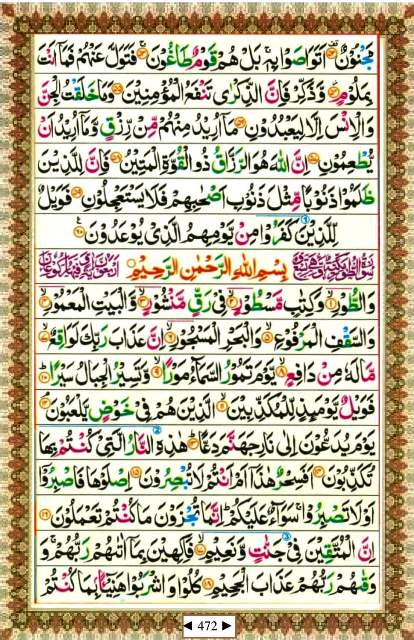 مَجْنُوْنٌ ۝ اَتَوَاصَوْا بِهٖ ۚ بَلْ هُمْ قَوْمٌ طَاغُوْنَ ۝ فَتَوَلَّ عَنْهُمْ فَمَاۤ اَنْتَ
بِمَلُوْمٍ ۝ وَّذَكِّرْ فَاِنَّ الذِّكْرٰى تَنْفَعُ الْمُؤْمِنِيْنَ ۝ وَمَا خَلَقْتُ الْجِنَّ
وَالْاِنْسَ اِلَّا لِيَعْبُدُوْنِ ۝ مَاۤ اُرِيْدُ مِنْهُمْ مِّنْ رِّزْقٍ وَّمَاۤ اُرِيْدُ اَنْ
يُّطْعِمُوْنِ ۝ اِنَّ اللّٰهَ هُوَ الرَّزَّاقُ ذُو الْقُوَّةِ الْمَتِيْنُ ۝ فَاِنَّ لِلَّذِيْنَ
ظَلَمُوْا ذَنُوْبًا مِّثْلَ ذَنُوْبِ اَصْحٰبِهِمْ فَلَا يَسْتَعْجِلُوْنِ ۝ فَوَيْلٌ
لِّلَّذِيْنَ كَفَرُوْا مِنْ يَّوْمِهِمُ الَّذِيْ يُوْعَدُوْنَ ۝
بِسْمِ اللّٰهِ الرَّحْمٰنِ الرَّحِيْمِ
وَالطُّوْرِ ۝ وَكِتٰبٍ مَّسْطُوْرٍ ۝ فِيْ رَقٍّ مَّنْشُوْرٍ ۝ وَّالْبَيْتِ الْمَعْمُوْرِ ۝
وَالسَّقْفِ الْمَرْفُوْعِ ۝ وَالْبَحْرِ الْمَسْجُوْرِ ۝ اِنَّ عَذَابَ رَبِّكَ لَوَاقِعٌ ۝
مَّا لَهٗ مِنْ دَافِعٍ ۝ يَّوْمَ تَمُوْرُ السَّمَآءُ مَوْرًا ۝ وَّتَسِيْرُ الْجِبَالُ سَيْرًا ۝
فَوَيْلٌ يَّوْمَئِذٍ لِّلْمُكَذِّبِيْنَ ۝ الَّذِيْنَ هُمْ فِيْ خَوْضٍ يَّلْعَبُوْنَ ۝
يَوْمَ يُدَعُّوْنَ اِلٰى نَارِ جَهَنَّمَ دَعًّا ۝ هٰذِهِ النَّارُ الَّتِيْ كُنْتُمْ بِهَا
تُكَذِّبُوْنَ ۝ اَفَسِحْرٌ هٰذَاۤ اَمْ اَنْتُمْ لَا تُبْصِرُوْنَ ۝ اِصْلَوْهَا فَاصْبِرُوْۤا
اَوْ لَا تَصْبِرُوْا ۚ سَوَآءٌ عَلَيْكُمْ ؕ اِنَّمَا تُجْزَوْنَ مَا كُنْتُمْ تَعْمَلُوْنَ ۝
اِنَّ الْمُتَّقِيْنَ فِيْ جَنّٰتٍ وَّنَعِيْمٍ ۝ فٰكِهِيْنَ بِمَاۤ اٰتٰىهُمْ رَبُّهُمْ ۚ وَ
وَقٰىهُمْ رَبُّهُمْ عَذَابَ الْجَحِيْمِ ۝ كُلُوْا وَاشْرَبُوْا هَنِيْٓـًٔا بِمَا كُنْتُمْ
◄ 472 ►